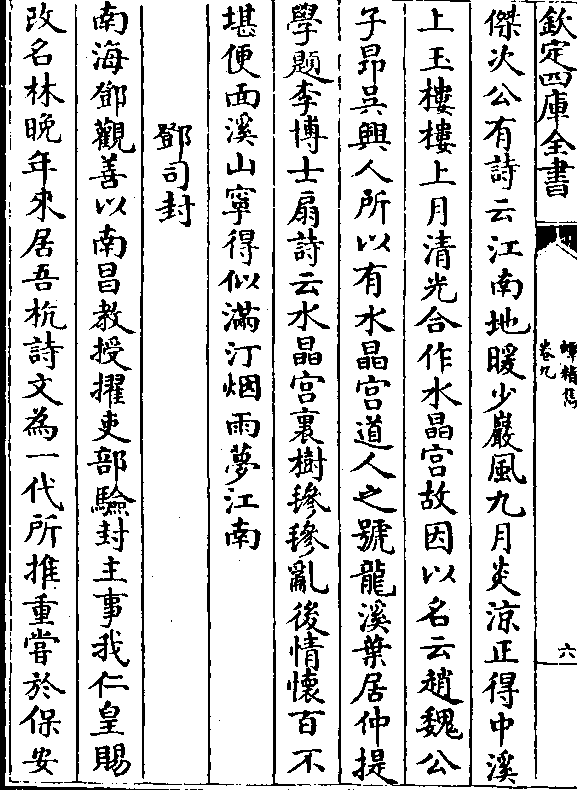 欽定四庫全書
蟫精雋
卷九
六
傑次公有詩云江南地暖少嚴風九月炎涼正得中溪
上玉樓樓上月清光合作水晶宮故因以名云趙魏公
子昻吳興人所以有水晶宮道人之號龍溪葉居仲提
學題李博士扇詩云水晶宮裏樹毿毿亂後情懐百不
堪便面溪山寧得似滿汀烟雨夢江南
鄧司封
南海鄧觀善以南昌教授擢吏部驗封主事我仁皇賜
改名林晚年來居吾杭詩文為一代所推重嘗於保安